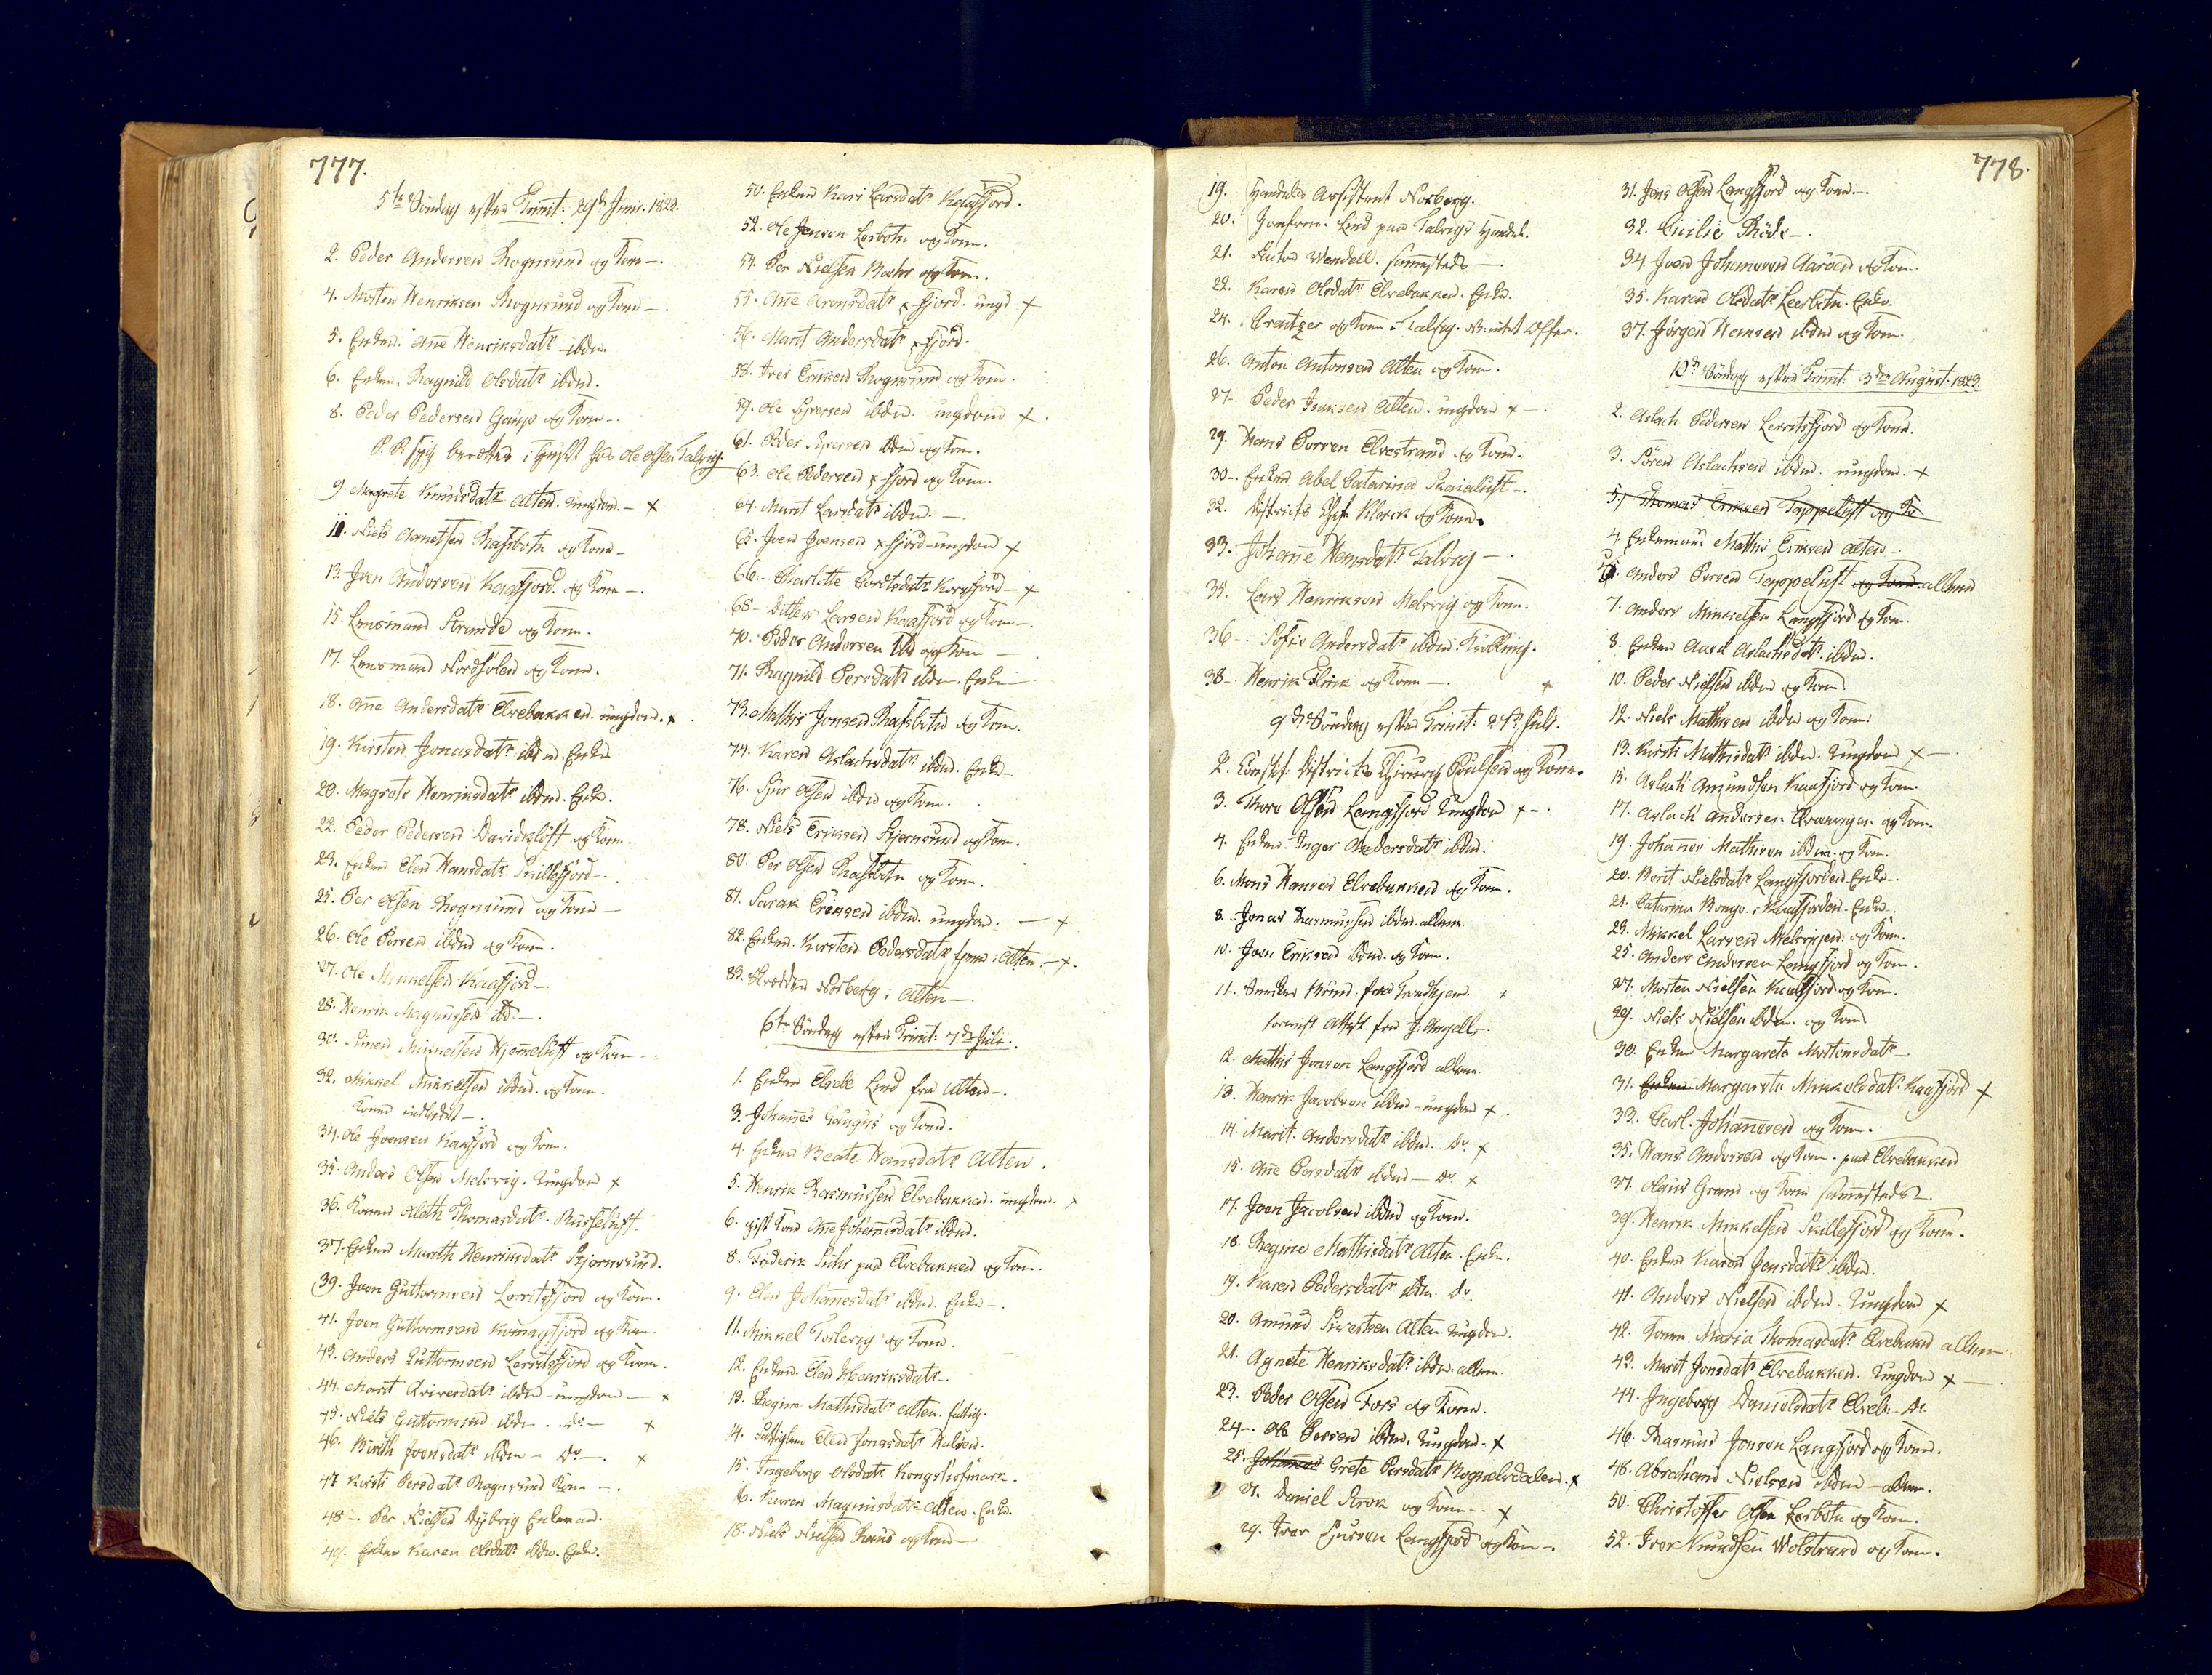 777.
5te Söndag efter Trinit: 29de Juni. 1823.
2. Peder Andersen Rognsund og Kone -.
4. Morten Henriksen Rognsund og Kone -.
5. Enken. Añe Henriksdatr ibdm.
6. Enken. Ragnild Olsdatr ibdm.
8. Peder Pedersen Gaup og Kone -.
P. P. syg berettet i huset hos Ole Olsen Talvig.
9. Magrete Knudsdatr Alten. ungdom. - x
11. Niels Ametsen Rafsbotn og Kone -
13. Joen Andersen Kaafjord. og Kone -.
15. Lensmand Strimde og Kone.
17. Lensmand Nordfolen og Kone.
18. Añe Andersdatr Elvebakken. ungdom. x
19. Kirsten Jonasdatr ibdm. Enke
20. Magrete Henriksdatr ibdm. Enke.
22. Peder Pedersen Davidsluft og Kone.
23. Enken Elen Hansdatr Skillefjord -.
25. Per Olsen Rognsund og Kone -
26. Ole Persen ibdm og Kone.
27. Ole Mikkelsen Kaafjord -.
28. Henrik Magnussen ibd. -.
30. Simen Mikkelsen Hjemeluft og Kone -
32. Mikkel Mikkelsen ibdm. og Kone.
Konen indledet -.
34. Ole Joensen Kaafjord og Kone.
35. Anders Olsen Melsvig. Ungdom x
36. Konen Aleth Thomasdatr. Russeluft.
37. Enken Marith Henriksdatr Stjernsund.
39. Joen Guttormsen Lerritsfjord og Kone.
41. Joen Guttormsen Komagfjord og Kone.
43. Anders Guttormsen Lerritsfjord og Kone.
44. Marit Qviversdatr ibdm - ungdom - x
45. Niels Guttormsen ibdm. do - x
46. Birith Joensdatr ibdm - do -. x
47 Kirsti Persdatr Rognsund Kone -.
48 -. Per Nielsen Dybvig Enkemand.
49. Enken Karen Olsdatr ibdm. Enke.
50. Enken Kari Larsdatr Kaafjord.
52. Ole Jensen Lerbotn og Kone.
54. Per Nielsen Bæhr og Kone.
55. Añe Aronsdatr x fjord. ungd x
56. Marit Andersdatr x fjord.
58. Iver Eriksen Rognsund og Kone.
59. Ole Iversen ibdm. ungdom x.
61. Peder Iversen ibdm og Kone.
63. Ole Pedersen x fjord og Kone.
64. Marit Larsdatr ibdm. -.
65. Joen Joensen x fjord - ungdom x
66 -. Charlotte Cordtsdatr Korsfjord - x
68 - Ditlew Larsen Kaafjord og Kone -.
70. Peder Andersen ibd og Kone -.
71. Ragnild Persdatr ibdm. Enke -.
73. Mathis Jonsen Rafsbotn og Kone.
74. Karen Aslachsdatr ibdm. Enke -
76. Siur Olsen ibdm og Kone.
78. Niels Eriksen Stjernsund og Kone.
80. Per Olsen Rafsbotn og Kone.
81. Sarak Eriksen ibdm. ungdom. - x
82. Enken. Kirsten Pedersdatr hjeme i Alten. - x.
83. Skredder Norberg i Alten -.
6te Söndag efter Trinit: 7de Juli.
1. Enken Elsebe Lind fra Alten -.
3. Johañes Gaugus og Kone.
4. Enken Beate Hansdatr Alten.
5. Henrik Rasmussen Elvebakken. ungdom. x
6. gift Kone Añe Johañesdatr ibdm.
8. Friderik Suhr paa Elvebakken og Kone.
9. Elen Johañesdatr ibdm. Enke -.
11. Mikkel Toslevig og Kone.
12. Enken. Elen Henriksdatr -.
13. Regine Mathisdatr Alten. fattig.
14. fattiglem Elen Jonasdatr Halsen.
15. Ingeborg Olsdatr Kongshofmark.
16. Karen Magnusdatr Alten. Enke.
18. Niels Nielsen Raus og Kone -
778.
19. Handels Assistent Norberg.
20. Jomfrue. Lind paa Talvigs Handel.
21. Wendell. samestede -
22. Karen Olsdatr Elvebakken. Enke.
24. Creutzer og Kone i Talvig. Offer.
26. Anton Antonsen Alten og Kone.
27. Peder Isaksen Alten. ungdom x -.
29. Hans Persen Elvestrand og Kone.
30 -. Enken. Abel Catarina Skaialuft -.
32. Districts Chir: Klerck og Kone.
33. Johañe Hansdatr Talvig -.
34. Lars Henriksen Melsvig og Kone.
36 -. Sofie Andersdatr ibdm. Kielling.
38 -. Henrik Flink og Kone -.
9de Söndag efter Trinit: 27de Juli.
2. Const: Districts Chirurg Poulsen og Kone.
3. Thore Olsen Langfjord Ungdom x -.
4. Enken. Inger Andersdatr ibdm.
6. Mons Hansen Elvebakken og Kone.
8. Jonas Rasmussen ibdm. allene.
10. Joen Eriksen ibdm. og Kone.
11. Snedker Brun. fra Trondhjem. x
foreviist Attest fra J: Angell -.
12. Mathis Jonsen Langfjord allene.
13. Henrik Jacobsen ibdm - ungdom x.
14. Marit. Andersdatr ibdm. do. x
15. Añe Persdatr ibdm - do x
17. Joen Jacobsen ibdm og Kone.
18. Regine Mathisdatr Alten. Enke.
19. Karen Pedersdatr ibdm. do.
20. Amund Sivertsen Alten ungdom.
21. Agnete Henriksdatr ibdm. allene.
23. Peder Olsen Fors og Kone.
24 -. Ole Persen ibdm. Ungdom. x
25. Johannes Grete Persdatr Bognelvdalen. x
27. Daniel Strøk og Kone -. x
29. Iver Sjursen Langfjord og Kone -.
31. Jens Olsen Langfjord og Kone -.
32. Cicilie Røde -.
34 Joen Johansen Aaröen og Kone.
35. Karen Olsdatr Leerbotn. Enke.
37. Jörgen Hansen ibdm og Kone.
10de Söndag efter Trinit: 3die August. 1823.
2. Aslach Pedersen Lerritsfjord og Kone.
3. Sören Aslachsen ibdm. ungdom. x
5) Thomas Eriksen Toppeluft og Ko
4. Enkemand Mathis Eriksen Alten -.
5. Anders Persen Toppeluft og Kone. allene
7. Anders Mikkelsen Langfjord og Kone.
8. Enken Aasel Aslachsdatr. ibdm.
10. Peder Nielsen ibdm og Kone
12. Niels Mathisen ibdm og Kone:
13. Kirsti Mathisdatr ibdm. Ungdom x -.
15. Aslach Amundsen Kaafjord og Kone.
17. Aslach Andersen og Kone.
19. Johañes Mathisen ibdm. og Kone.
20. Berit Nielsdatr Langfjorden Enke -.
21. Catarina Bongo i Kaafjorden. Enke.
23. Mikkel Larsen Melsvigen. og Kone.
25. Anders Andersen Langfjord og Kone.
27. Morten Nielsen Kaafjord og Kone.
29. Niels Nielsen ibdm. og Kone
30. Enken Margarete Mortensdatr -
31. Enken Margarete Mikkelsdatr. Kaafjord x
33. Carl. Johannsen og Kone.
35. Hans Andersen og Kone. paa Elvebakken
37. Olaus Grand og Kone samestedes -.
39. Henrik Mikkelsen Skillefjord og Kone.
40. Enken Karen Jensdatr ibdm.
41. Anders Nielsen ibdm - Ungdom x
42. Konen. Maria Thomasdatr Elvebakk allene.
42. Marit Jonsdatr Elvebakken. Ungdom x -
44. Ingeborg Danielsdatr Elveb. do.
46. Rasmus Jonsen Langfjord og Kone.
48. Abraham Nielsen ibdm - allene.
50. Christoffer Olsen Lerbotn og Kone.
52. Iver Knudsen Wolstrand og Kone.